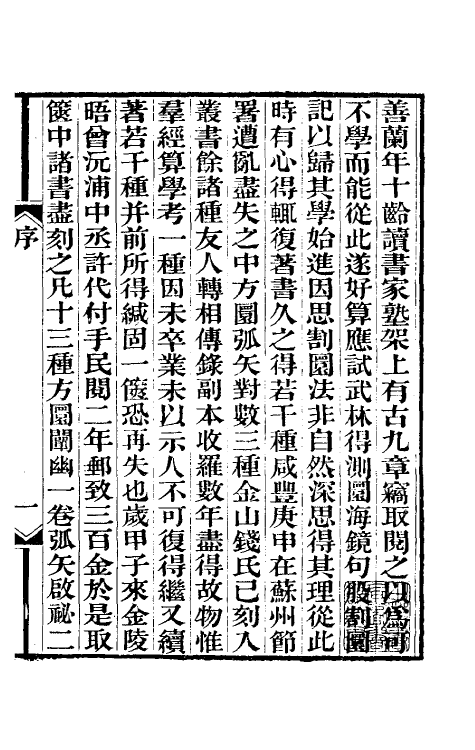 善蘭年十齡讀書家塾架上有古九章竊取閱之以爲可
不學而能從此遂好算應試武林得測圜海鏡句股割圜
記以歸其學始進因思割圜法非自然深思得其理從此
時有心得輒復著書久之得若干種咸豐庚申在蘇州節
署遭亂盡失之中方圜弧矢對數三種金山錢氏已刻入
叢書餘諸種友人轉相傳錄副本收羅數年盡得故物惟
羣經算學考一種因未卒業未以示人不可復得繼又續
著若干種并前所得緘固一篋恐再失也歲甲子來金陵
晤曾沅浦中丞許代付手民閱二年郵致三百金於是取
篋中諸書盡刻之凡十三種方圜闡幽一卷弧矢啟祕二
序
一